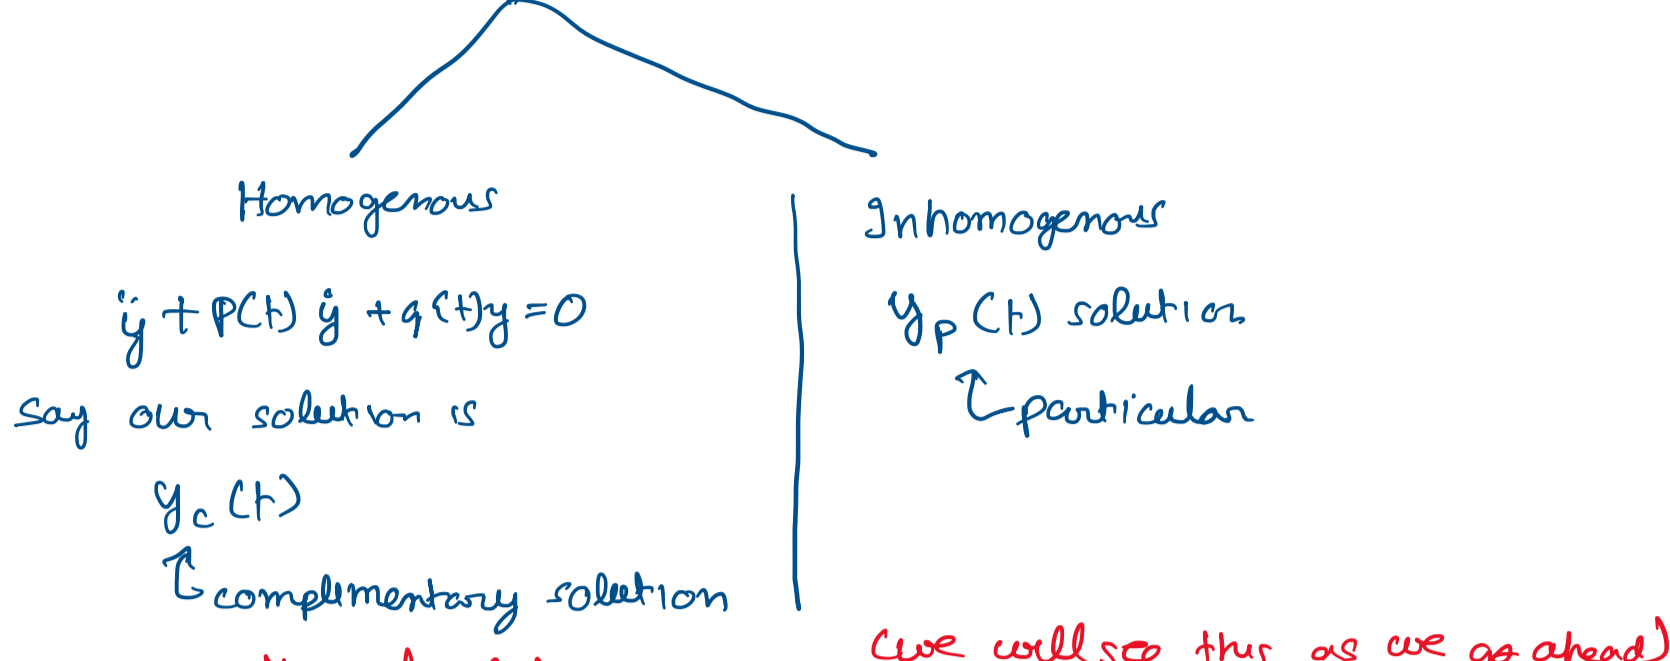 Homogenous
ÿ + p(t) ẏ + q(t)y = 0
Say our solution is
y_c (t)
complimentary solution
Inhomogenous
y_p (t) solution
particular
(we will see this as we go ahead)